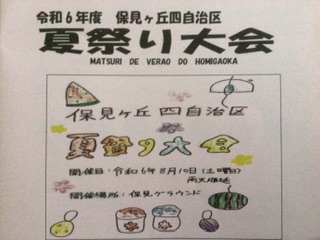 令和6年度 保見ヶ丘四自治区
夏祭り大会
MATSURI DE VERAO DO HOMIGAOKA
保見ヶ丘四自治区
夏祭り大会
開催日:令和6年8月10日(土曜日)
雨天順延
開催場所:保見グラウンド